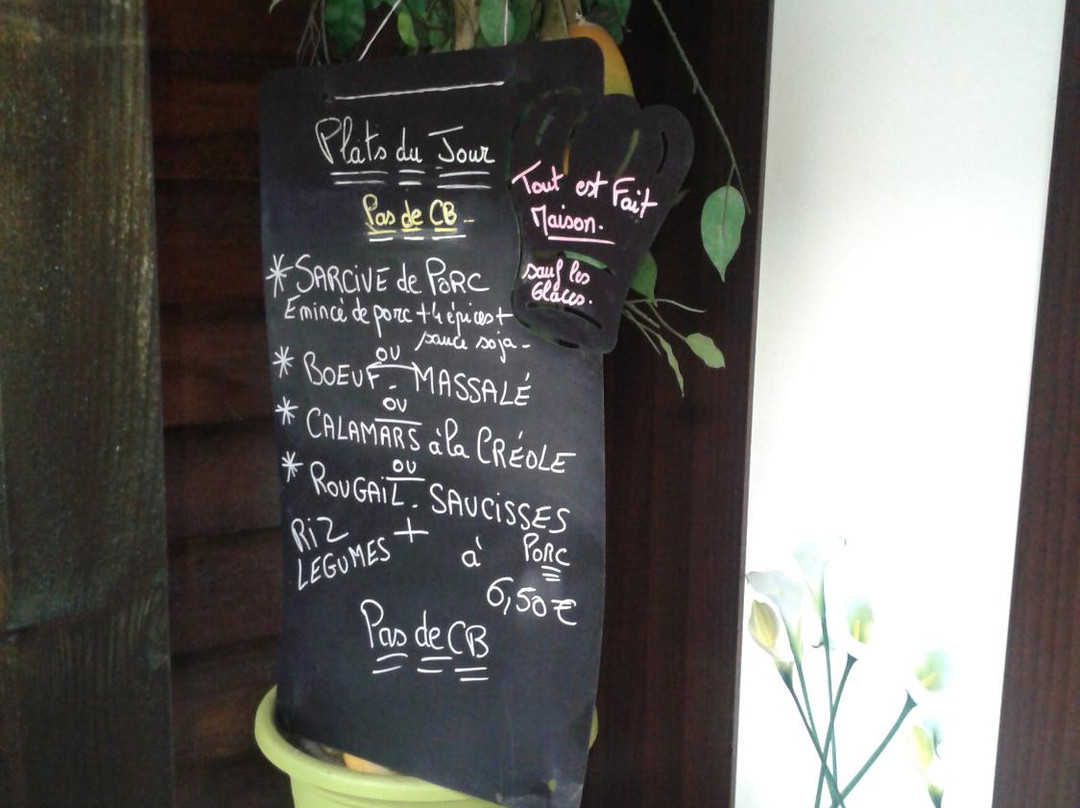 Plats du Jour
Pas de CB
* SARCIVE de PORC
Emincé de porc + 4 épices +
sauce soja -
ou
* BOEUF - MASSALÉ
ou
* CALAMARS à la CRÉOLE
ou
* ROUGAIL - SAUCISSES
PORC
RIZ +
LEGUMES
à
6,50 €
Pas de CB
Tout est Fait
Maison.
sauf les
Glaces.